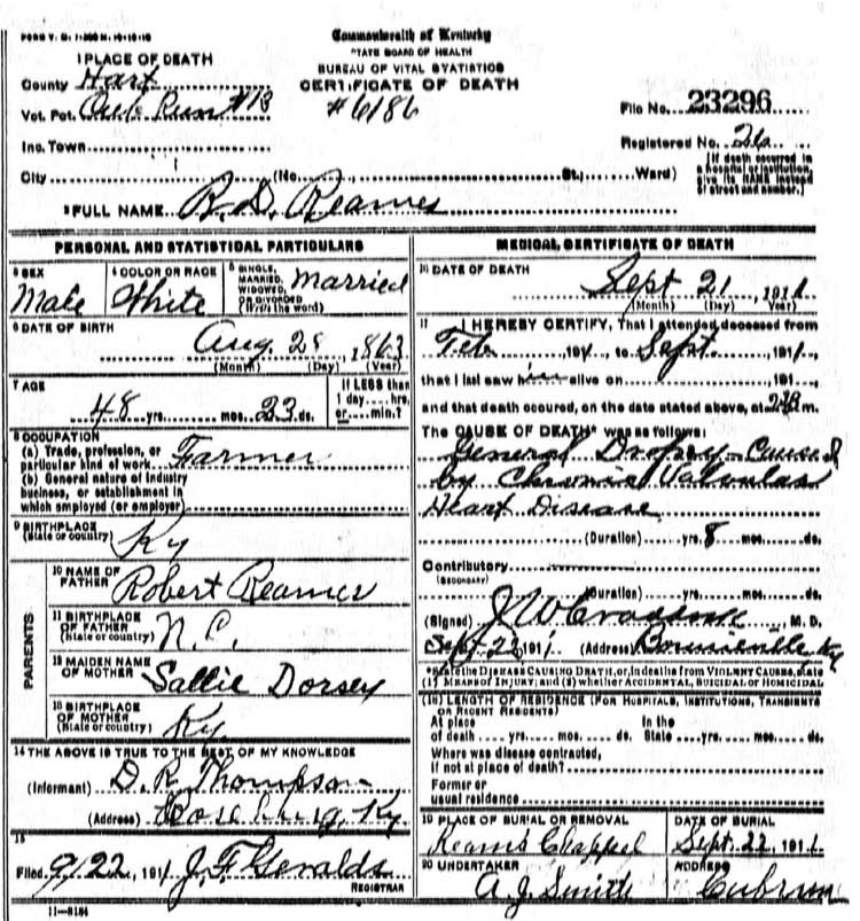 FORM V. S. 1-300 M. 10-10-10
Commonwealth of Kentucky
STATE BOARD OF HEALTH
BUREAU OF VITAL STATISTICS
CERTIFICATE OF DEATH
#6186
1 PLACE OF DEATH
County Hart
Vot. Pct. Cub Run #13
Inc. Town
City (No. St.; Ward)
File No. 23296
Registered No. 26
[If death occurred in
a hospital or institution,
give its NAME instead
of street and number.]
2 FULL NAME R. D. Reames
PERSONAL AND STATISTICAL PARTICULARS
3 SEX
Male
4 COLOR OR RACE
White
5 SINGLE,
MARRIED,
WIDOWED,
OR DIVORCED
(Write the word)
Married
6 DATE OF BIRTH
Aug. 28, 1863
(Month) (Day) (Year)
7 AGE
48 yrs. mos. 23 ds.
If LESS than
1 day....hrs.
or....min.?
8 OCCUPATION
(a) Trade, profession, or
particular kind of work Farmer
(b) General nature of industry
business, or establishment in
which employed (or employer)
9 BIRTHPLACE
(State or country) Ky
PARENTS
10 NAME OF
FATHER Robert Reames
11 BIRTHPLACE
OF FATHER
(State or country) N. C.
12 MAIDEN NAME
OF MOTHER Sallie Dorsey
13 BIRTHPLACE
OF MOTHER
(State or country) Ky
14 THE ABOVE IS TRUE TO THE BEST OF MY KNOWLEDGE
(Informant) D. R. Thompson
(Address) Ky
15
Filed 9/22, 1911 J. F. Geralds
REGISTRAR
11—8184
MEDICAL CERTIFICATE OF DEATH
16 DATE OF DEATH
Sept 21, 1911
(Month) (Day) (Year)
17 I HEREBY CERTIFY, That I attended deceased from
Feb 191, to Sept. 1911,
that I last saw him alive on 191,
and that death occured, on the date stated above, at m.
The CAUSE OF DEATH* was as follows:
General Dropsy - Caused
by Chronic Valvular
Heart Disease
(Duration) yrs. 8 mos. ds.
Contributory
(SECONDARY)
(Duration) yrs. mos. ds.
(Signed) J W M. D.
Sept. 22, 1911 (Address) Bonnieville Ky
*State the DISEASE CAUSING DEATH, or, in deaths from VIOLENT CAUSES, state
(1) MEANS OF INJURY; and (2) whether ACCIDENTAL, SUICIDAL or HOMICIDAL
(18) LENGTH OF RESIDENCE (FOR HOSPITALS, INSTITUTIONS, TRANSIENTS
OR RECENT RESIDENTS)
At place In the
of death yrs. mos. ds. State yrs. mos. ds.
Where was disease contracted,
if not at place of death?
Former or
usual residence
19 PLACE OF BURIAL OR REMOVAL
Reams Chappel
DATE OF BURIAL
Sept. 22, 1911
20 UNDERTAKER
A. J. Smith
ADDRESS
Cubrun